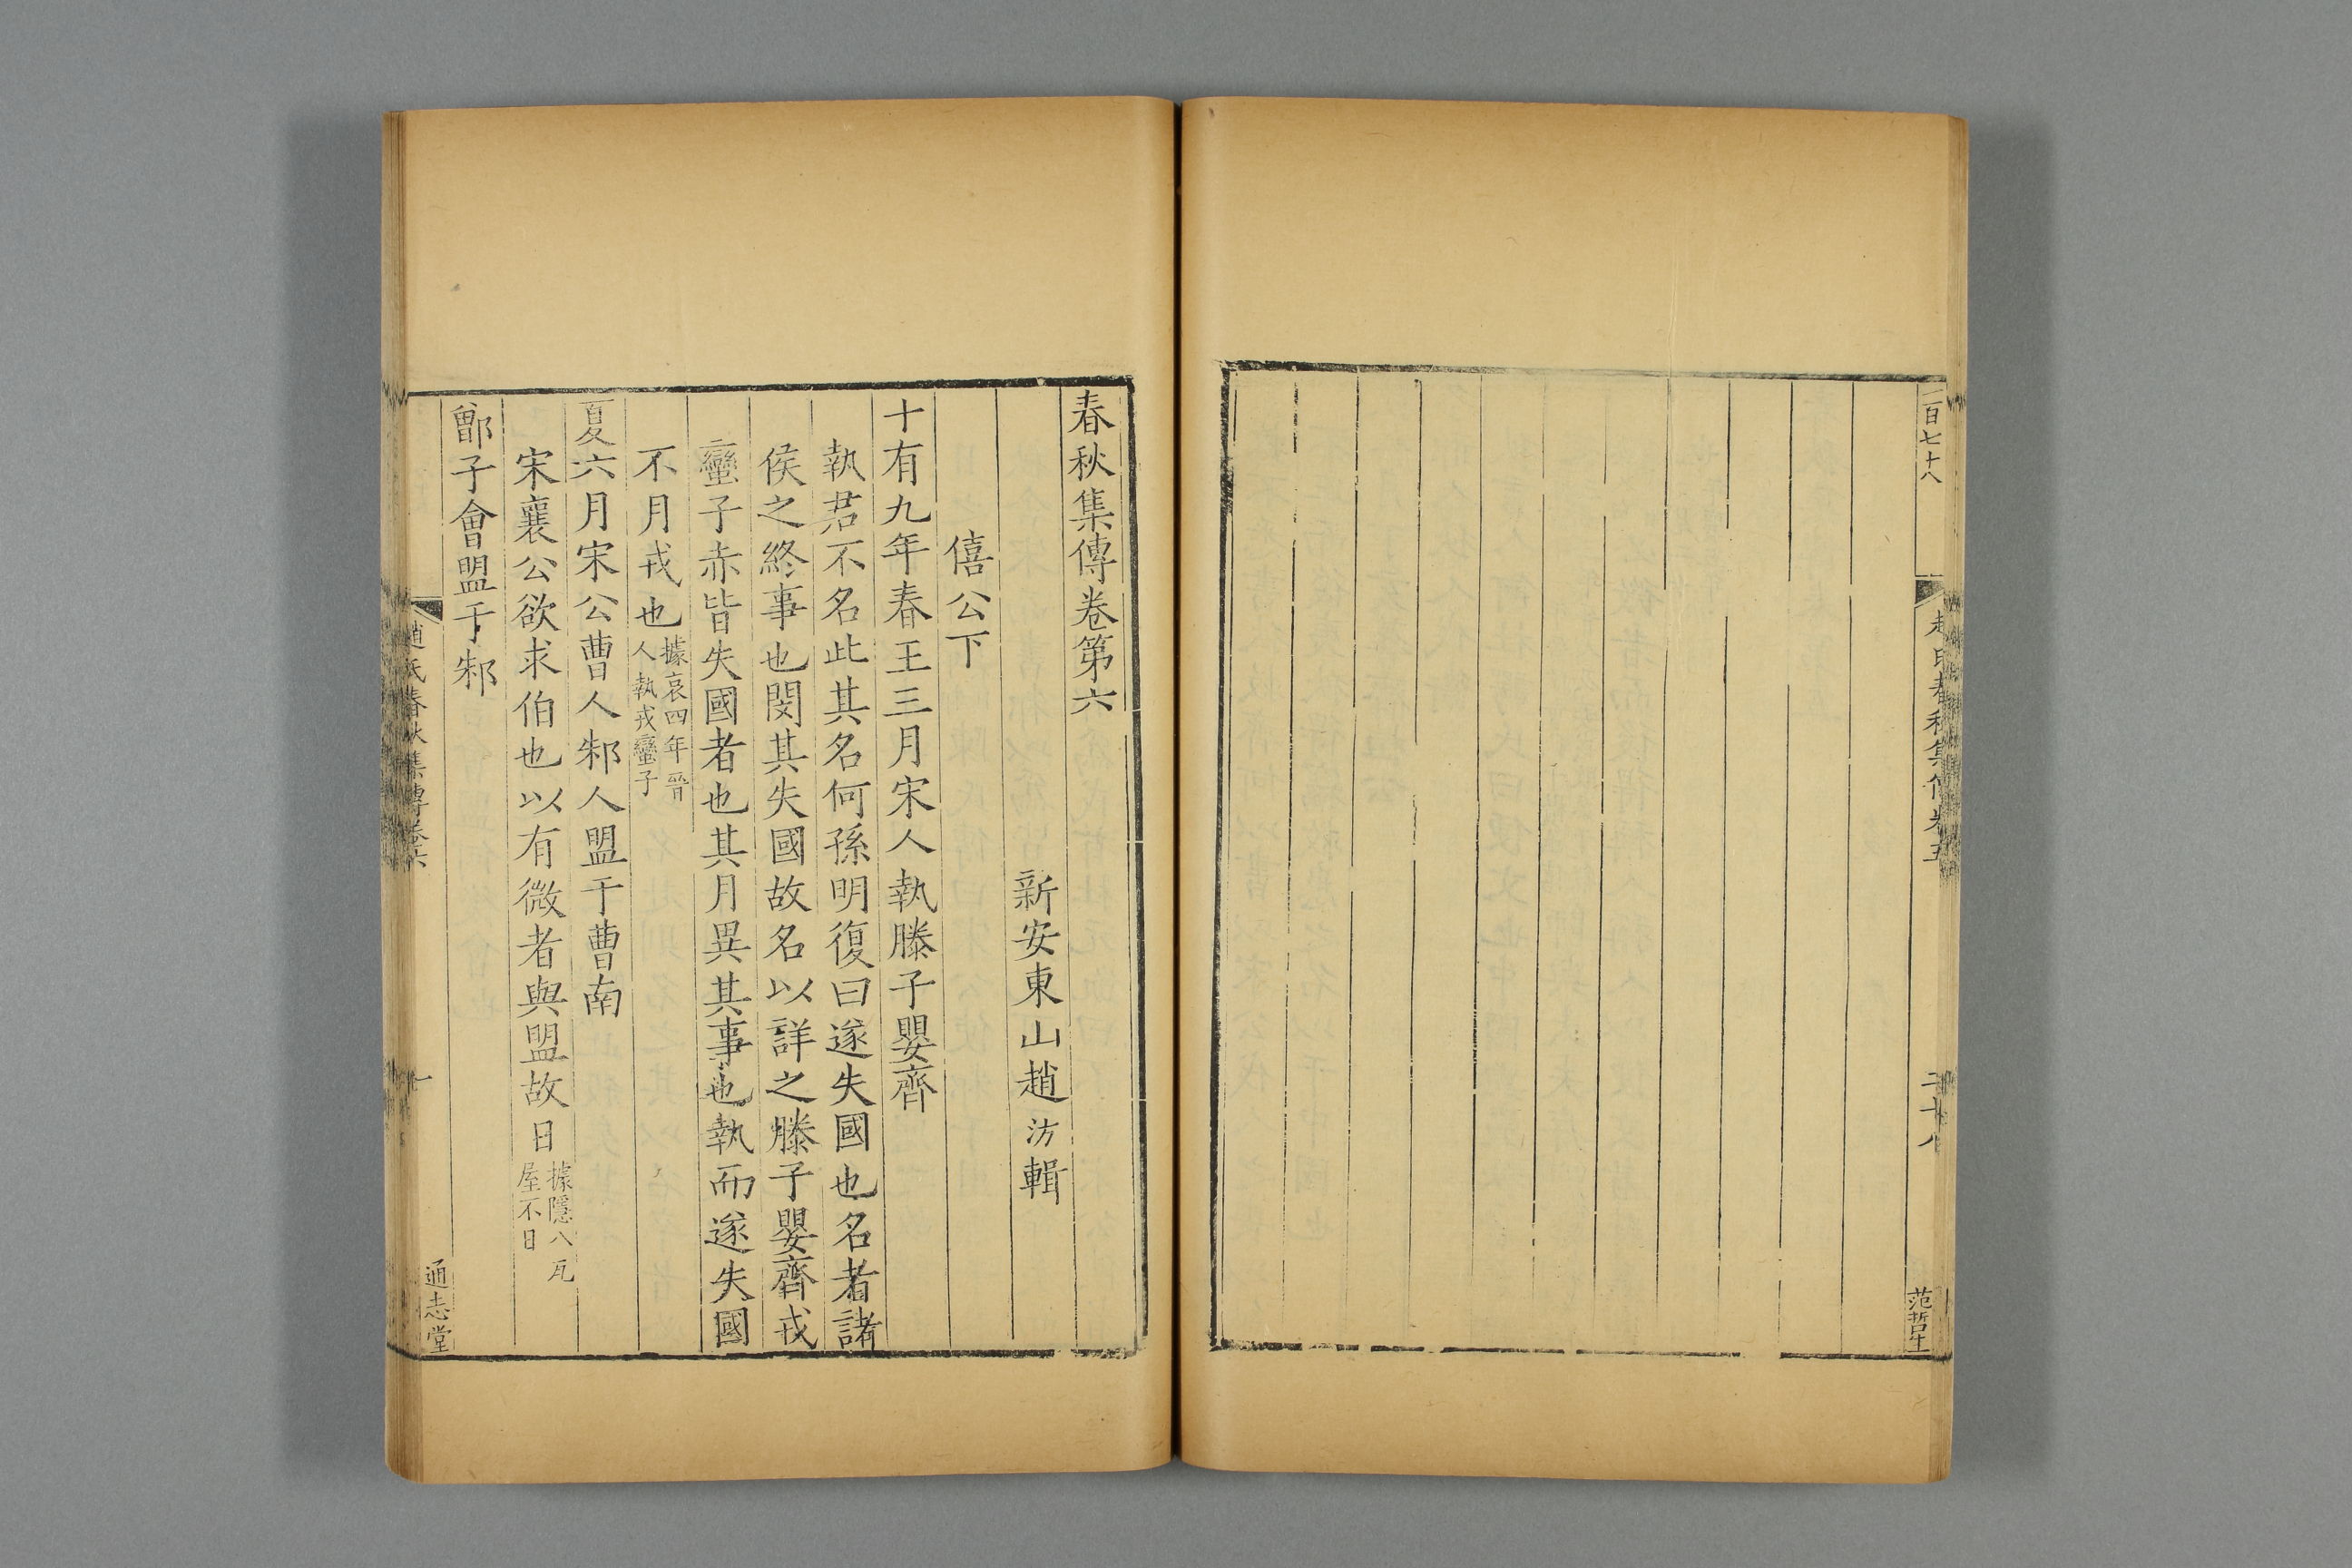 二百七十八
趙氏春秋集傳卷五
二十八
范哲生
春秋集傳卷第六
新安東山趙汸輯
僖公下
十有九年春王三月宋人執滕子嬰齊
執君不名此其名何孫明復曰遂失國也名者諸
侯之終事也閔其失國故名以詳之滕子嬰齊戎
蠻子赤皆失國者也其月異其事也執而遂失國
不月戎也據哀四年晉
人執戎蠻子
夏六月宋公曹人邾人盟于曹南
宋襄公欲求伯也以有微者與盟故日據隱八瓦
屋不日
鄫子會盟于邾
趙氏春秋集傳卷六
一
通志堂